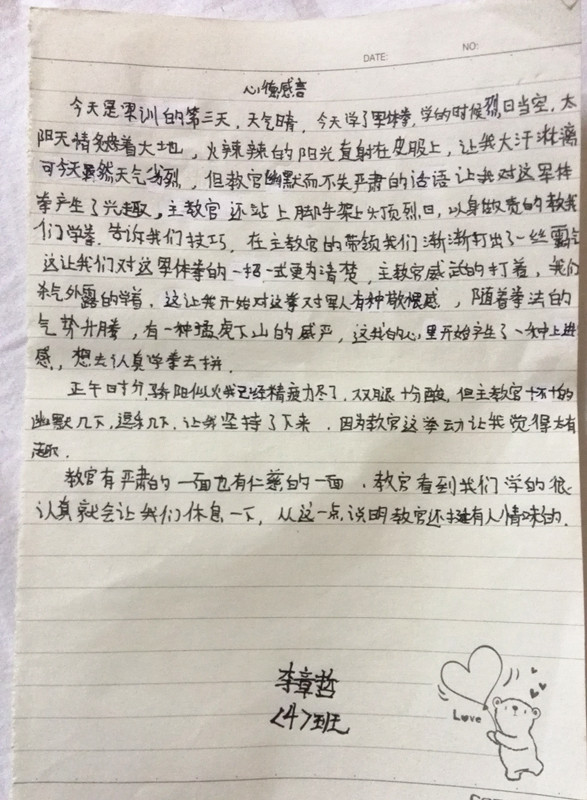 DATE: NO:
心德感言
今天是军训的第三天，天气晴，今天学了军体拳，学的时候烈日当空，太
阳无情烧着大地，火辣辣的阳光直射在皮服上，让我大汗淋漓
可今天虽然天气炎烈，但教官幽默而不失严肃的话语让我对这军体
拳产生了兴趣，主教官还站上脚手架上头顶烈日，以身做责的教我
们学拳，告诉我们技巧，在主教官的带领我们渐渐打出了一丝霸气
这让我们对这军体拳的一招一式更为清楚，主教官威武的打着，我们
杀气外露的学着，这让我开始对这拳对军人有种敬恨感，随着拳法的
气势升腾，有一种猛虎下山的威严，这我的心里开始产生了一种上进
感，想去认真学拳去拼．
正午时分骄阳似火我已经精疲力尽了，双腿十分酸，但主教官时不时的
幽默几下，逗乐几下，让我坚持了下来．因为教官这举动让我觉得太有
趣．
教官有严肃的一面也有仁慈的一面．教官看到我们学的很
认真就会让我们休息一下，从这一点说明教官还挺有人情味的．
李章哲
<4>班
Love